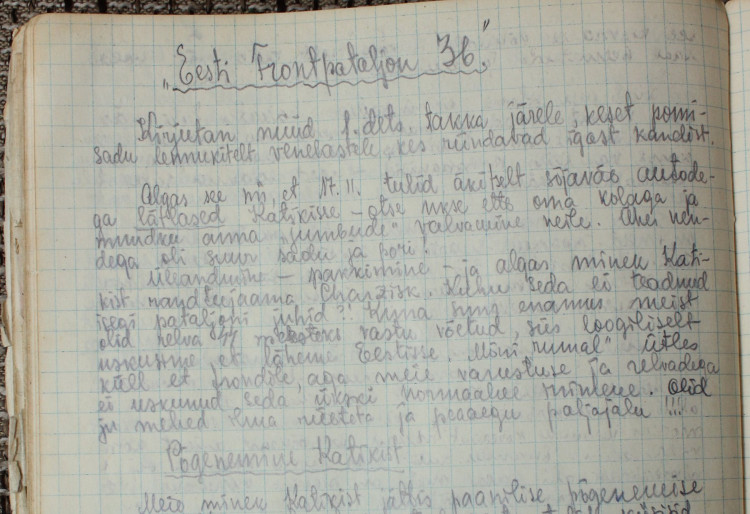 „Eesti Frontpataljon 36."
Kirjutan nüüd 1. dets. takka järele, keset pommi-
sadu lennukitelt venelastele, kes ründavad igast kandist.
Algas see nii, et 17.11. tulid äkitselt sõjaväe autode-
ga lätlased Katikisse – otse ukse ette oma kolaga ja
muudku anna „jumbude" valvamine neile. Ühes nen-
dega oli suur sadu ja pori!
Üleandmine – pakkimine – ja algas minek Kati-
kist raudteejaama Charzisk. Kuhu seda ei teadnud
isegi pataljoni juhid?! Kuna enamus meist
olid vastu võetud, siis loogiliselt
uskusime et läheme Eestisse. Mõni „rumal" ütles
küll et frondile, aga meie varustuse ja relvadega
ei uskunud seda ükski normaalne inimene. Olid
ju mehed ilma riieteta ja peaaegu paljajalu!!!
Põgenemine Katikist
Meie minek Katikist jättis paanilise põgenemise